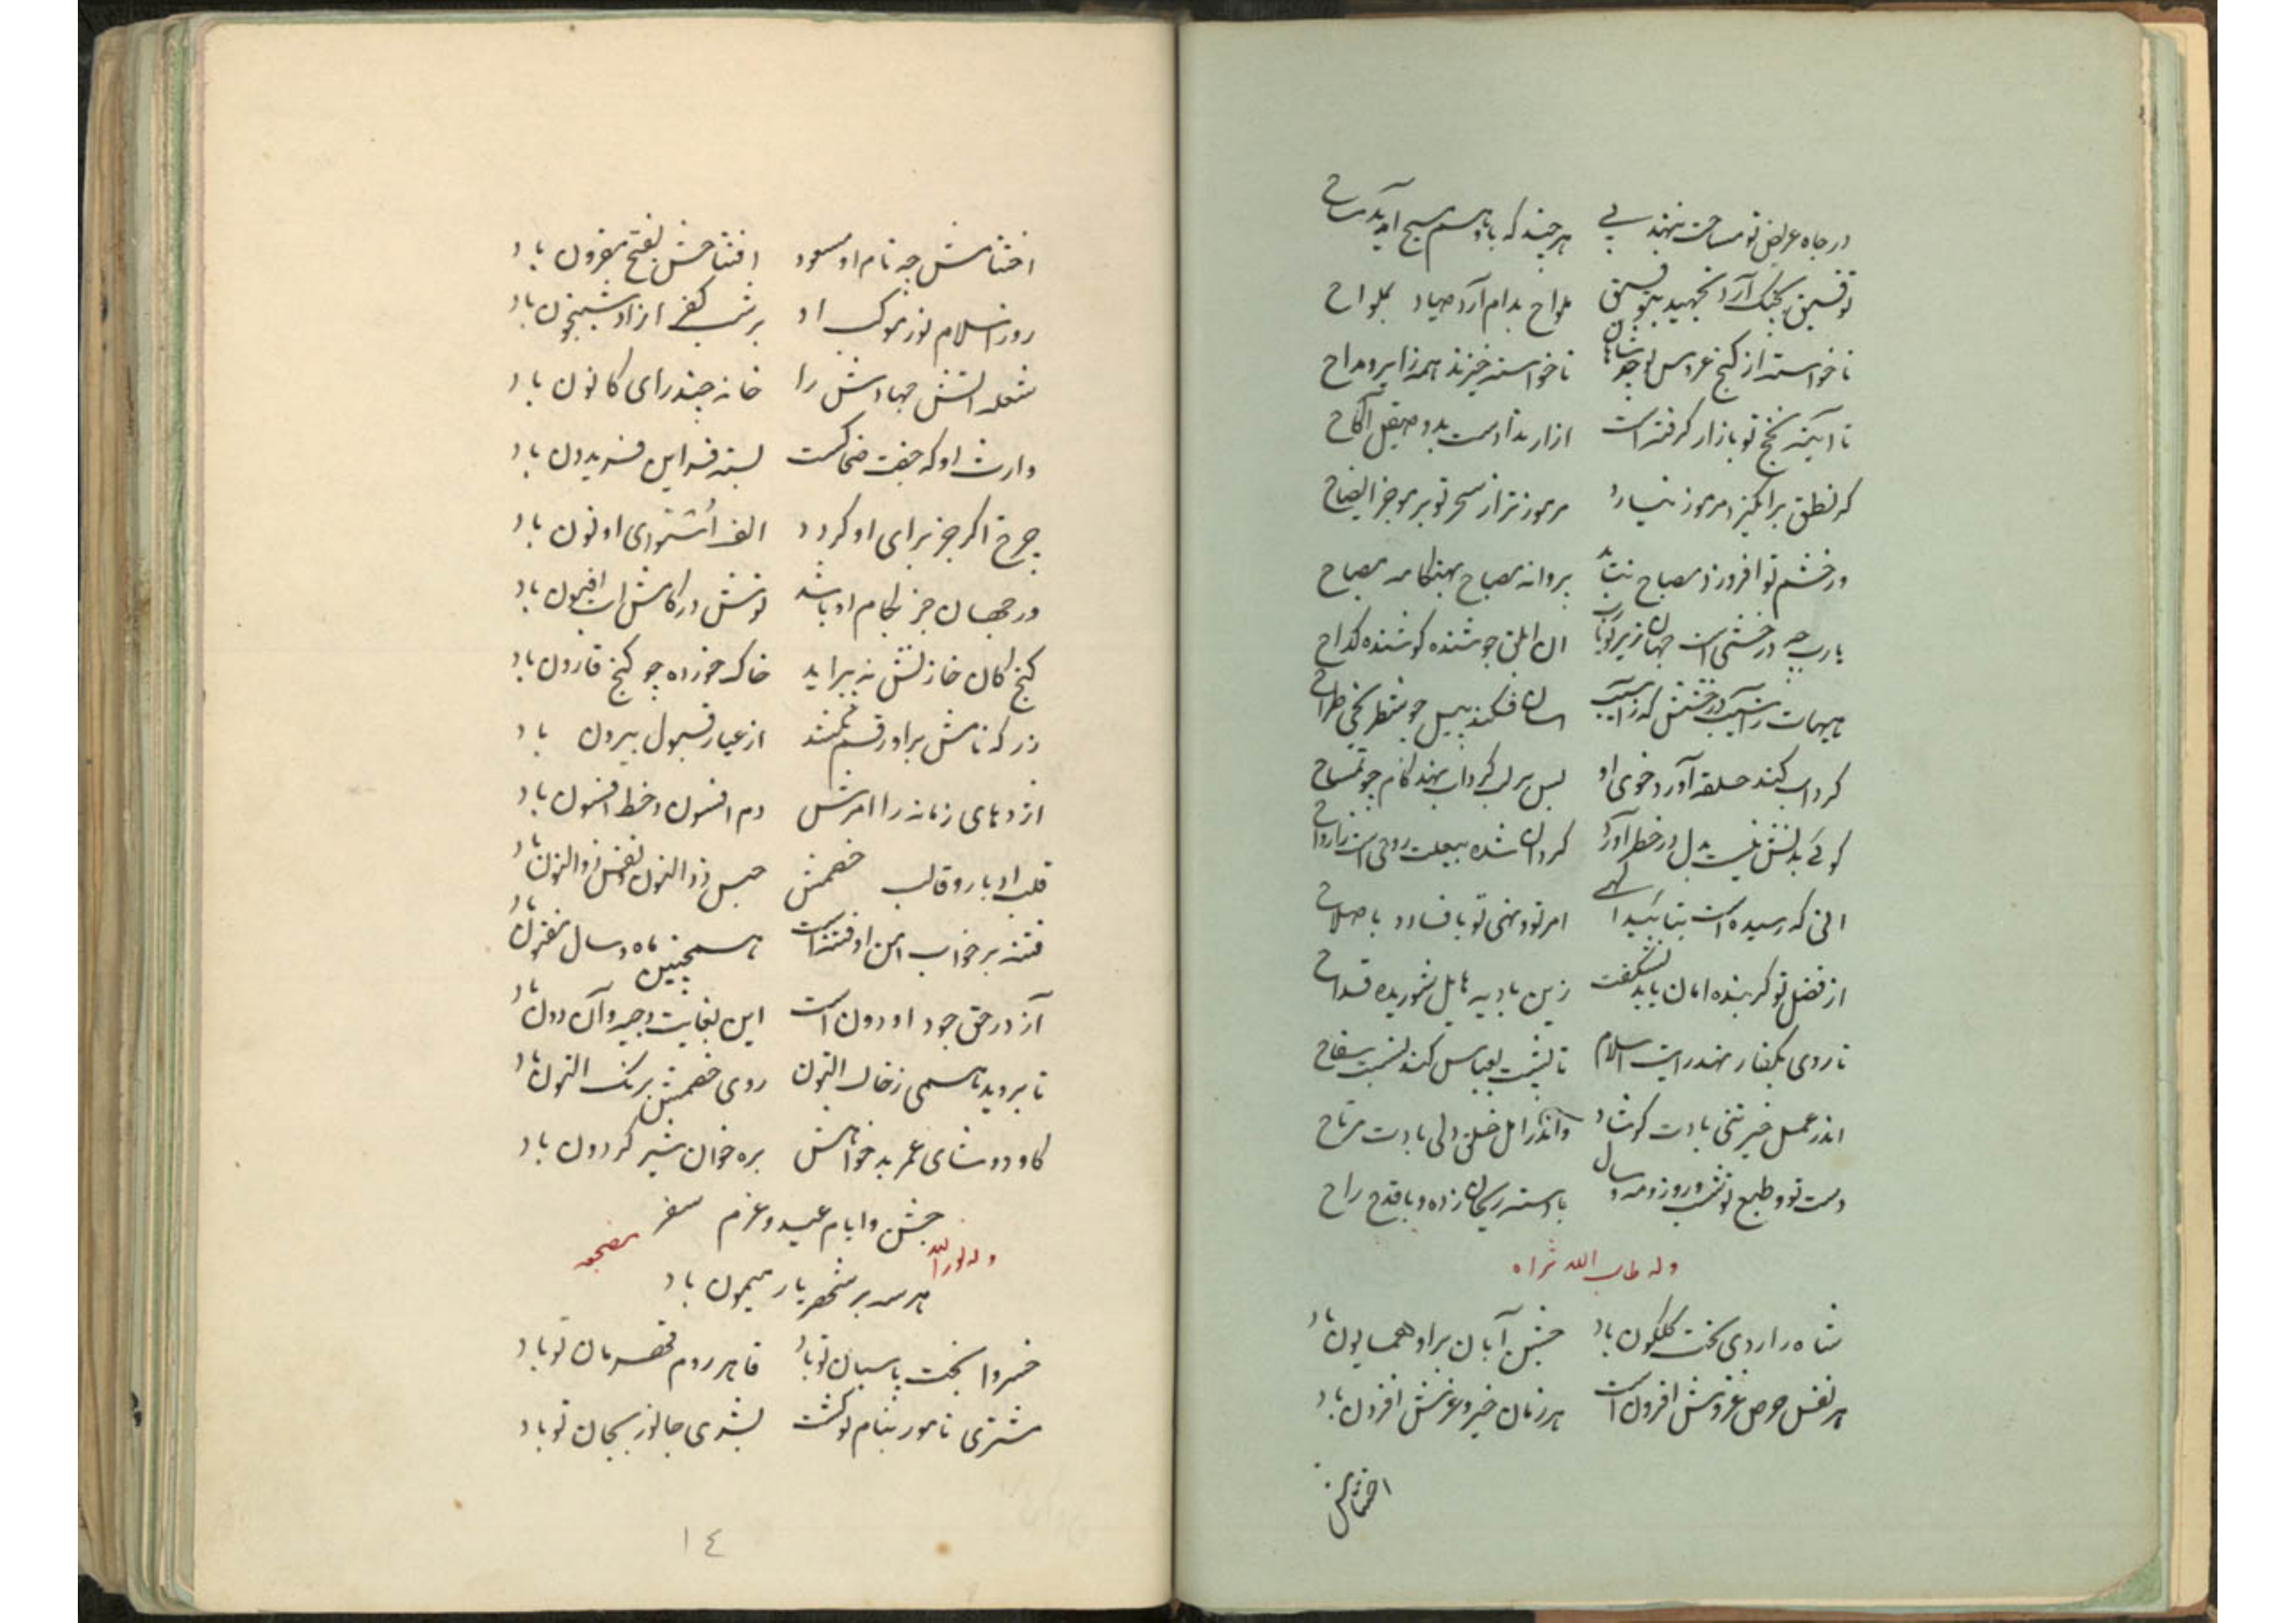 در جاه عریض تو مساحت ننهد پی هر چند که با وهم مسیح آید مساح
توفیق بچنگ آرد نخجیر بتوفیق ملواح بدام آرد صیاد بملواح
ناخواسته از گنج عروس تو چو شاهان ناخواسته خیزند همه زایر و مداح
تا آینه نجح تو بازار گرفته است
گر نطق برانگیزد مرموز نیارد مرموزتر از سحر تو بر موجز ایضاح
ور خشم تو افروزد مصباح نتابد پروانه مصباح بهنگامه مصباح
یارب چه درخشی است جهان زیر رکابت آن ابلق جوشنده کوشنده کداح
هیهات
گرداب کند حلقه آورد خوی او پس بر لب گرداب نهد گام چو تمساح
گوئی بدنش نیست بدل در خطر آورد گردان شده بیعلت روحی است ز ارواح
آنی که رسیده است بتأیید الهی امر تو و نهی تو بافساد و باصلاح
از فضل تو گر بنده امان یابد نشگفت زین بادیه هایل شوریده قداح
تا روی بکفار نهد رایت اسلام تا پشت بعباس کند نسبت سفاح
اندر عمل خیر تنی بادت کوشا واندر امل خلق دلی بادت مرتاح
دست تو و طبع تو شب و روز و مه و سال با دسته ریحان زده و با قدح راح
وله طاب الله ثراه
شاه را روی بخت گلگون باد جشن آبان بر او همایون باد
هر نفس حرص غزوش افزون است هر زمان خیر و عزش افزون باد
اختتامش
اختتامش چو نام او مسعود افتتاحش بفتح مقرون باد
روز اسلام نور موکب او بر شب کفر ازاو شبیخون باد
شعله آتش جهادش را خانه چندرای کانون باد
وارث او که جفت ضحاکست بسته فر این فریدون باد
چرخ اگر جز برای او گردد الف استوای او نون باد
ور جهان جز بکام او باشد نوش در کامش آب افیون باد
گنج کان خازنش نه پیراید خاک خورده چو گنج قارون باد
زر که نامش بر او رقم نکنند از عیار قبول بیرون باد
اژدهای زمانه را امرش دم افسون و خط افسون باد
قلب ادبار و قالب خصمش حبس ذوالنون و نفس ذوالنون باد
فتنه بر خواب امن او فتنه است همچنین ماه و سال مفتون باد
آز در حق جود او دون است این بغایت وجیه و آن دون باد
تا بروید همی ز خاک التون روی خصمش برنگ التون باد
گاو دوشای عمر بدخواهش بره خوان شیر گردون باد
جشن و ایام عید و عزم سفر
هر سه بر شهریار میمون باد
وله نور الله مضجعه
خسروا بخت پاسبان تو باد قاهر روم قهرمان تو باد
مشتری نامور بنام تو گشت
١٤